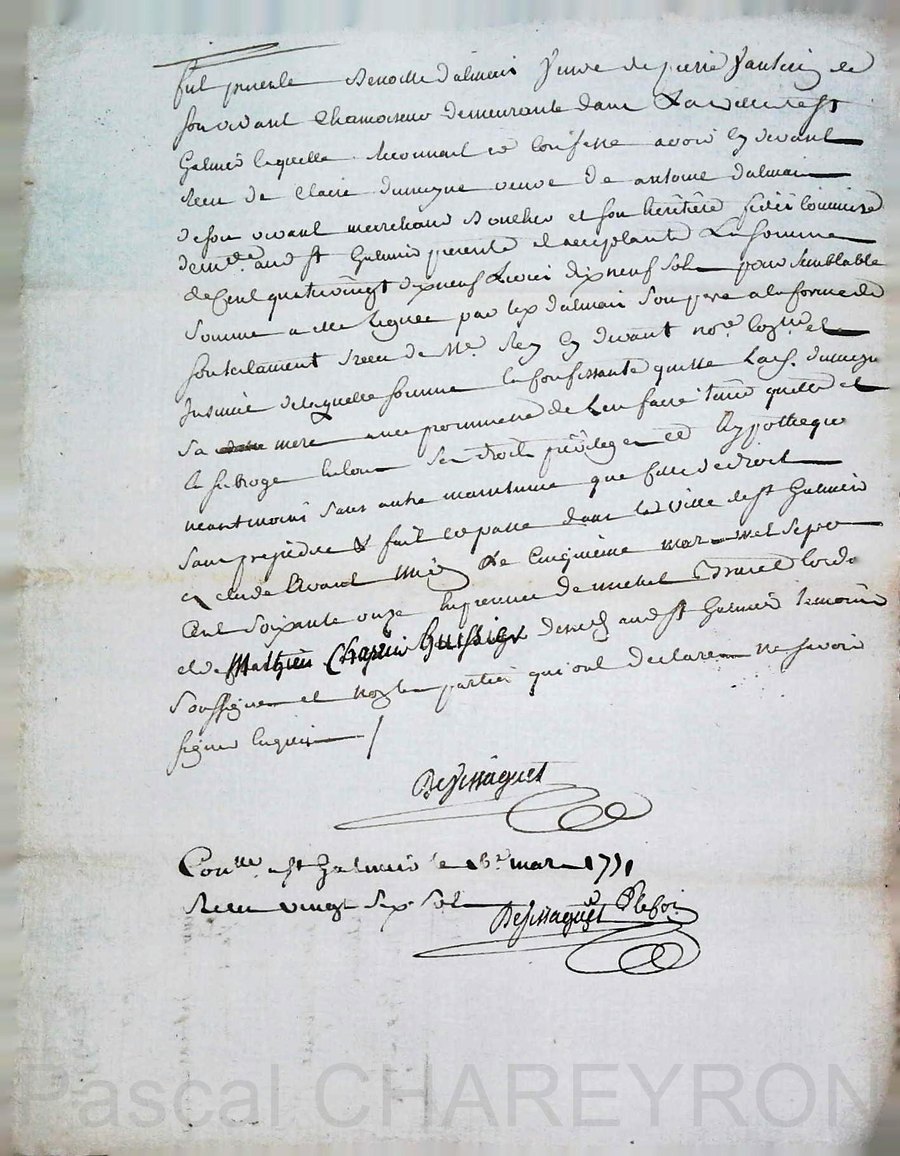 fut presente Benoitte dalmais veuve de pierre de
son vivant Chamoiseur demeurante dans La ville de st
Galmier laquelle Reconnait et Confesse avoir cy devant
Receu de Claire dumeyne veuve de antoine dalmais
de son vivant marchand Boucher et son héritière fidei Commise
demte. aud st Galmier presente et acceptante La somme
de Cent quatrevingt dix neuf Livres dix neuf sols pour semblable
Somme a elle Leguée par led dalmais Son pere a la forme de
son testament Receu de Me. Rey cy devant nore. et
Insinué de laquelle somme la Confessante quitte Lad. dumeyne
Sa mere avec promesse de L'en faire tenir quitte et
la subroge en Ses droits privileges et hypotheque
neantmoins sans autre maintenue que de droit
sans prejudice & fait et passé dans la ville de st Galmier
en etude avant midy Le Cinquième mars mil sept
Cent Soixante onze En presence de michel
et de Mathieu Chapuis Huissier dem aud st Galmier temoins
Soussignes et non les parties qui ont declaré ne savoir
signer Enquis /
Bessaguet
Conlle. a st Galmier le 15e mars 1771
Receu vingt Six Sols
Bessaguet
Pascal CHAREYRON